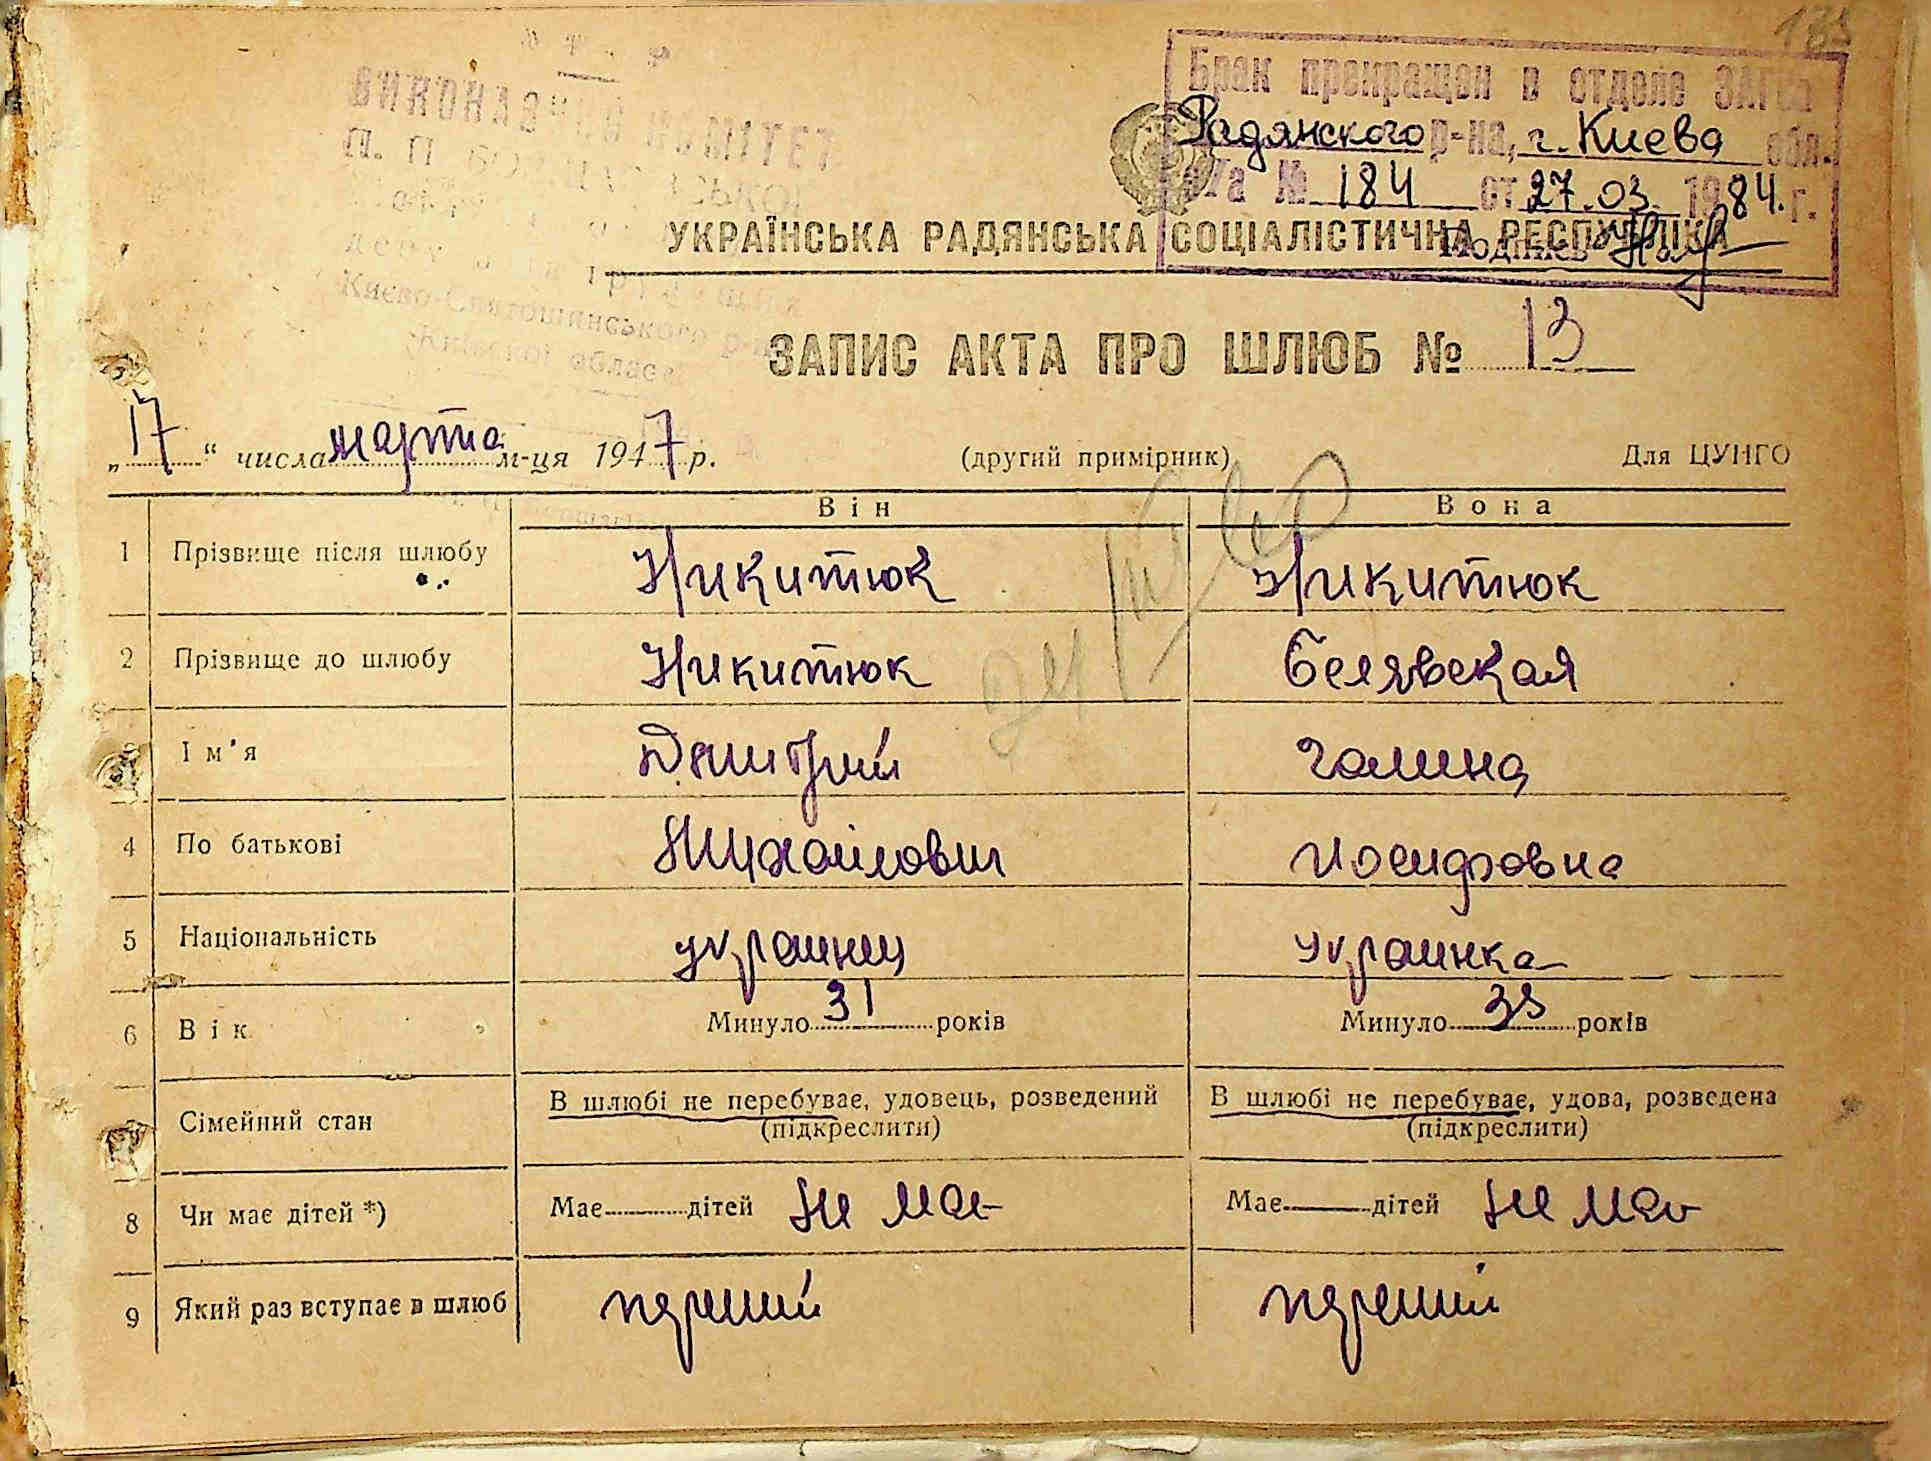 185
Брак прекращен в отделе ЗАГСа
Радянского р-на, г. Киева обл.
№ 184 от 27.03. 1984. г.
Подпись
ВИКОНАВЧИЙ КОМІТЕТ
Києво-Святошинського р-ну
Київської області
УКРАЇНСЬКА РАДЯНСЬКА СОЦІАЛІСТИЧНА РЕСПУБЛІКА
ЗАПИС АКТА ПРО ШЛЮБ № 13
„17“ числа марта м-ця 1947 р. (другий примірник) Для ЦУНГО
Він Вона
1 Прізвище після шлюбу Никитюк Никитюк
2 Прізвище до шлюбу Никитюк Белявская
3 Ім'я Дмитрий Галина
4 По батькові Михайлович Иосифовна
5 Національність украинец украинка
6 Вік Минуло 31 років Минуло років
Сімейний стан В шлюбі не перебуває, удовець, розведений В шлюбі не перебуває, удова, розведена
(підкреслити) (підкреслити)
8 Чи має дітей *) Має дітей не має Має дітей не має
9 Який раз вступає в шлюб перший перший